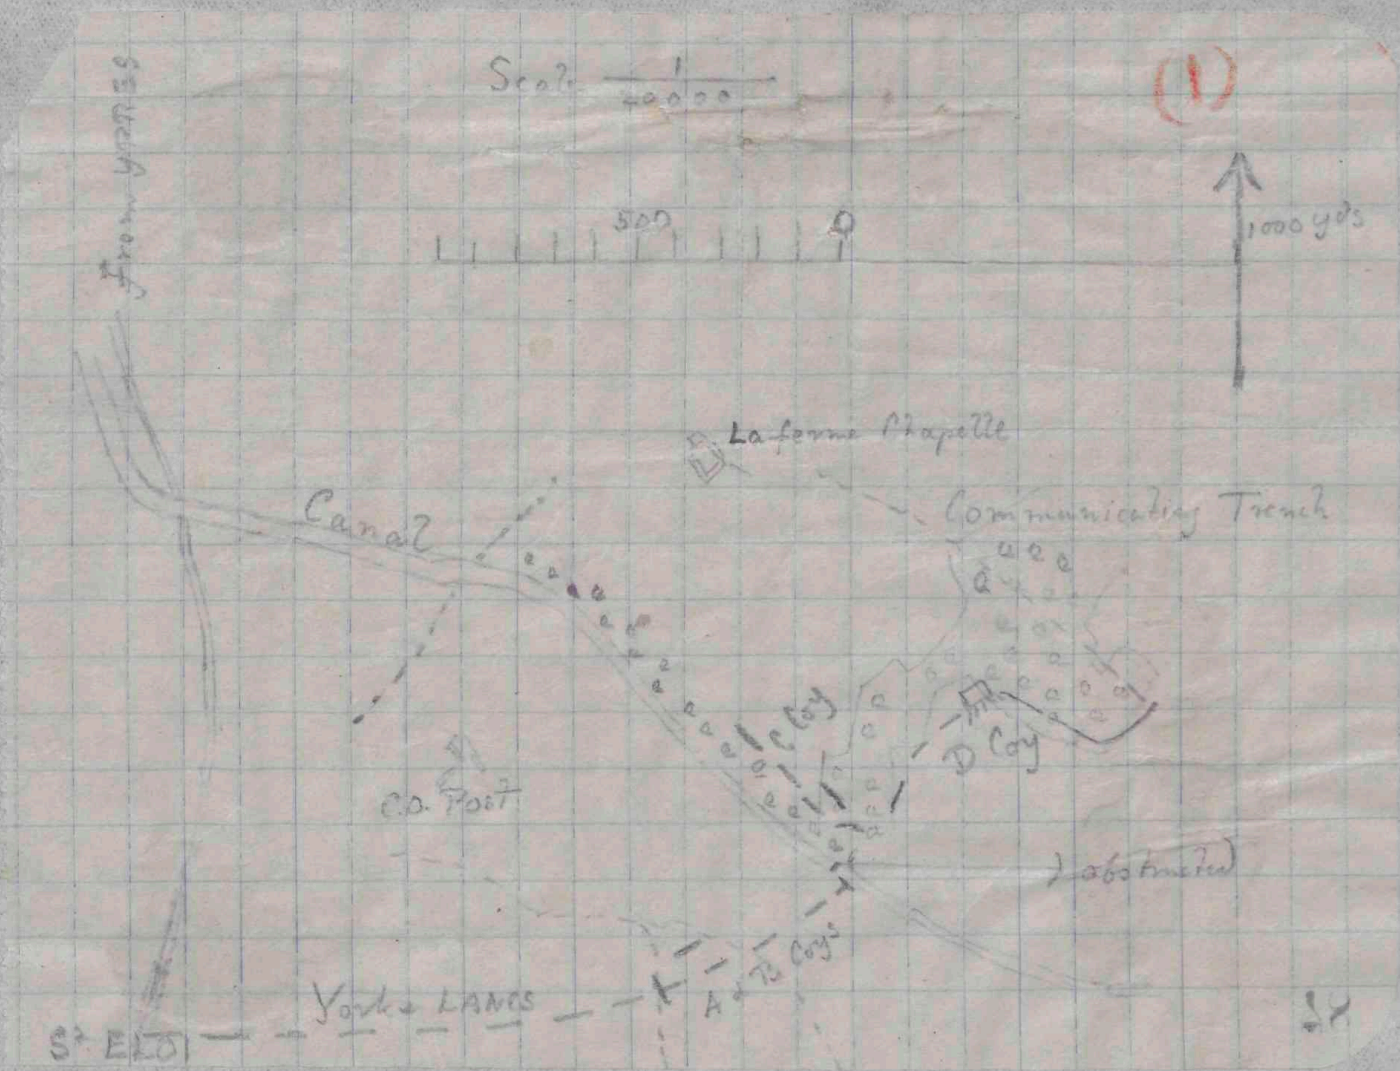 (1)
From YPRES
Scale 1
20000
500 0
1000 yds
La ferme Chapelle
Canal
Communicating Trench
C Coy
D Coy
C.O. Post
obstructed
A & B Coys
York & LANCS
St ELOI